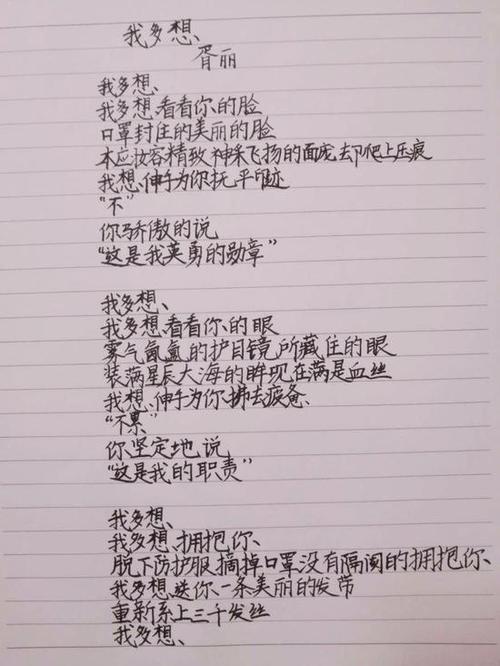 我多想、
胥丽
我多想、
我多想、看看你、的脸
口罩封住的美丽的脸
本应妆容精致神采飞扬的面庞去却爬上压痕
我想、伸手为你、抚平印迹
“不”
你骄傲的说
“这是我英勇的勋章”
我多想、
我多想、看看你、的眼
雾气氤氲的护目镜所藏住的眼
装满星辰大海的眸现在满是血丝
我想、伸手为你、拂去疲惫、
“不累”
你、坚定地说
“这是我的职责”
我多想、
我多想、拥抱你、
脱下防护服摘掉口罩没有隔阂的拥抱你、
我多想、送你、一条美丽的发带
重新系上三千发丝
我多想、